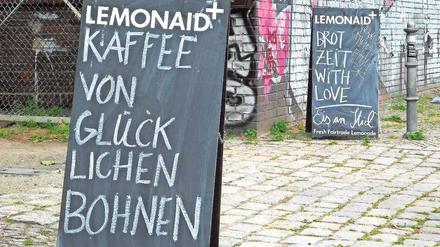 LEMONAID+
KAFFEE
VON
GLÜCK
LICHEN
BOHNEN
LEMONAID+
BROT
ZEIT
WITH
LOVE
Eis am Stiel
Fresh Fairtrade Lemonade